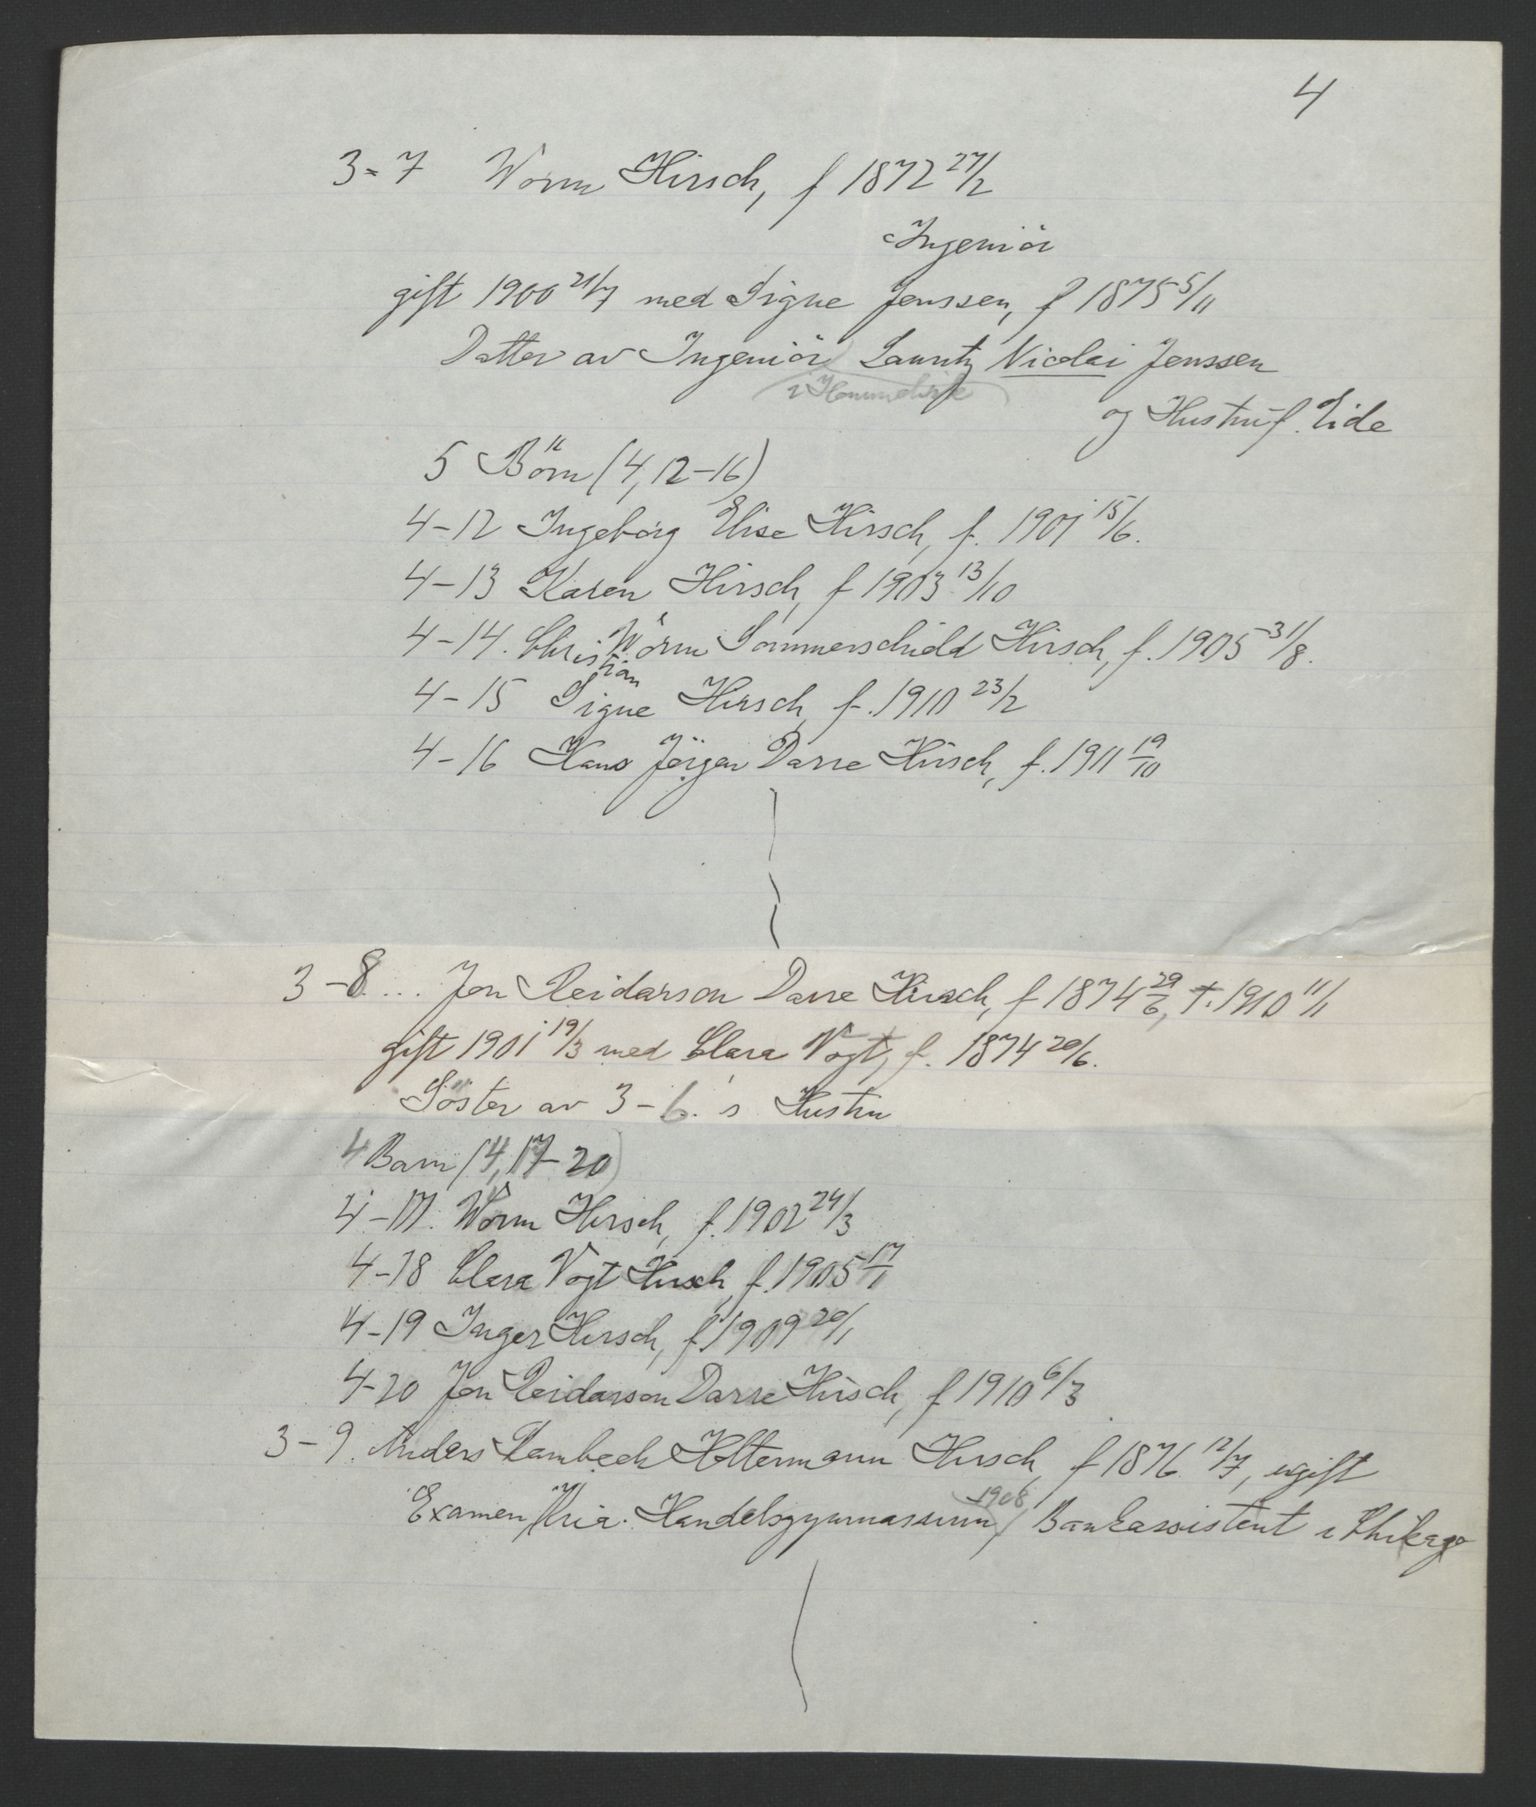 4
3-7 Worm Hirsch, f 1872 27/2
Ingeniör
gift 1900 21/7 med Signe Jenssen, f 1875 5/11
Datter av Ingeniör Lauritz Nicolai Jenssen
i Hommelvik
og Hustru f. Eide
5 Börn (4, 12-16)
4-12 Ingeborg Elise Hirsch, f. 1901 15/6.
4-13 Karen Hirsch, f 1903 13/10
4-14. Christian Worm Sommerschield Hirsch, f. 1905 31/8.
4-15 Signe Hirsch, f. 1910 23/2
4-16 Hans Jörgen Darre Hirsch, f. 1911 19/10
3-8... Jon Reidarson Darre Hirsch, f 1874 29/6, †. 1910 11/1
gift 1901 19/3 med Clara Vogt, f. 1874 20/6.
Söster av 3-6.'s Hustru
4 Barn (4, 17-20)
4-17. Worm Hirsch, f. 1902 24/3
4-18 Clara Vogt Hirsch, f. 1905 17/1
4-19 Inger Hirsch, f 1909 20/1
4-20 Jon Reidarson Darre Hirsch, f 1910 6/3
3-9. Anders Rambech Holtermann Hirsch, f 1876 12/7, ugift
Examen Kria. Handelsgymnasium 1908, Bankassistent i Chikago